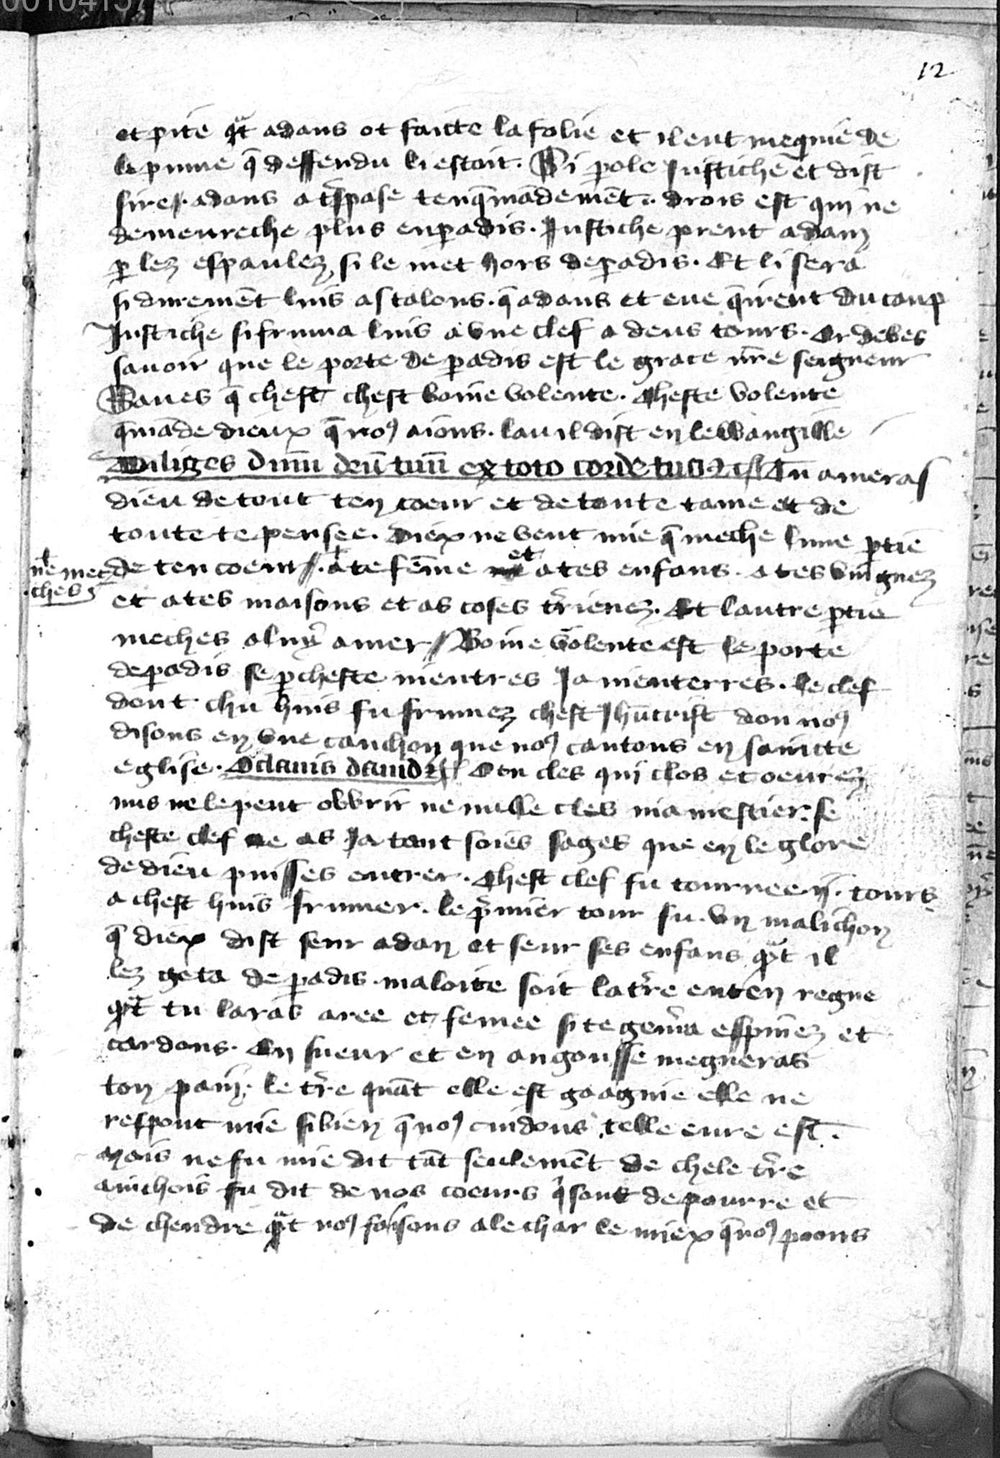 00104137
12
et pite qͣt adans ot faicte la folie et il eut meguie de
le pume q̄ deffendu li estoit. Si pole Justiche et dist
sire. adans a tͤspase ten q̄mādemēt. drois est qui ne
demeureche plus en padis. Justiche prent adam
p lez espaulez, si le met hors de padis. Et li sera
si durement luis as talons. q̄ adans et eue q̄irent du caup
Justiche si fruma luis a vne clef a deus tours. Or debes
sauoir que le porte de padis est le grace nr̄e seigneur
Saues q̄ chest chest boine volente. Cheste volente
q̄māde dieux q̄ noꝰ aions. la v il dist en lewangille
Diliges dnm̄ deū tuū ex toto corde tuo ⁊c̄ Tu ameras
dieu de tout ten coeur et de toute tame et de
toute te pensee. Diex ne veut mie q̄ meche lune ptie
ne met
ches
de ten coeur. a te feme et a tes enfans. a tes vingnez
et a tes maisons et as coses tr̄ienez. Et lautre ptie
meches a luy amer Boine volente est le porte
de padis se p cheste nientres Ja nienterres. le clef
dont chu huis fu frumez chest Jhūcrist don noꝰ
disons en vne canchon que noꝰ cantons en saincte
eglise. O clauis dauid ⁊c̄ O tu cles qui clos et oeurez
nus ne le peut ovvrir ne nulle cles ni a mestier. se
cheste clef ne as Ja tant soies sages que en le glore
de dieu puisses entrer. Chest clef fu tournee ij. tours
a chest huis frumer. le pͥmier tour fu. vn malichon
q̄ diex dist seur adan et seur ses enfans qͣt il
lez geta de padis. maloite soit la tr̄e en ten regne
qͣt tu laras aree et semee si te gemͤra espinez et
cardons. En sueur et en angousse megneras
ton pain. le tr̄e quāt elle est gaagnie elle ne
respont mie si bien q̄ noꝰ cuidons telle eure est.
Mais ne fu mie dit tāt seulemēt de chele tr̄e
ainchois fu dit de nos coeurs qͥ sont de pourre et
de chendre qͣt noꝰ faisons a le char le miex q̄ noꝰ poons